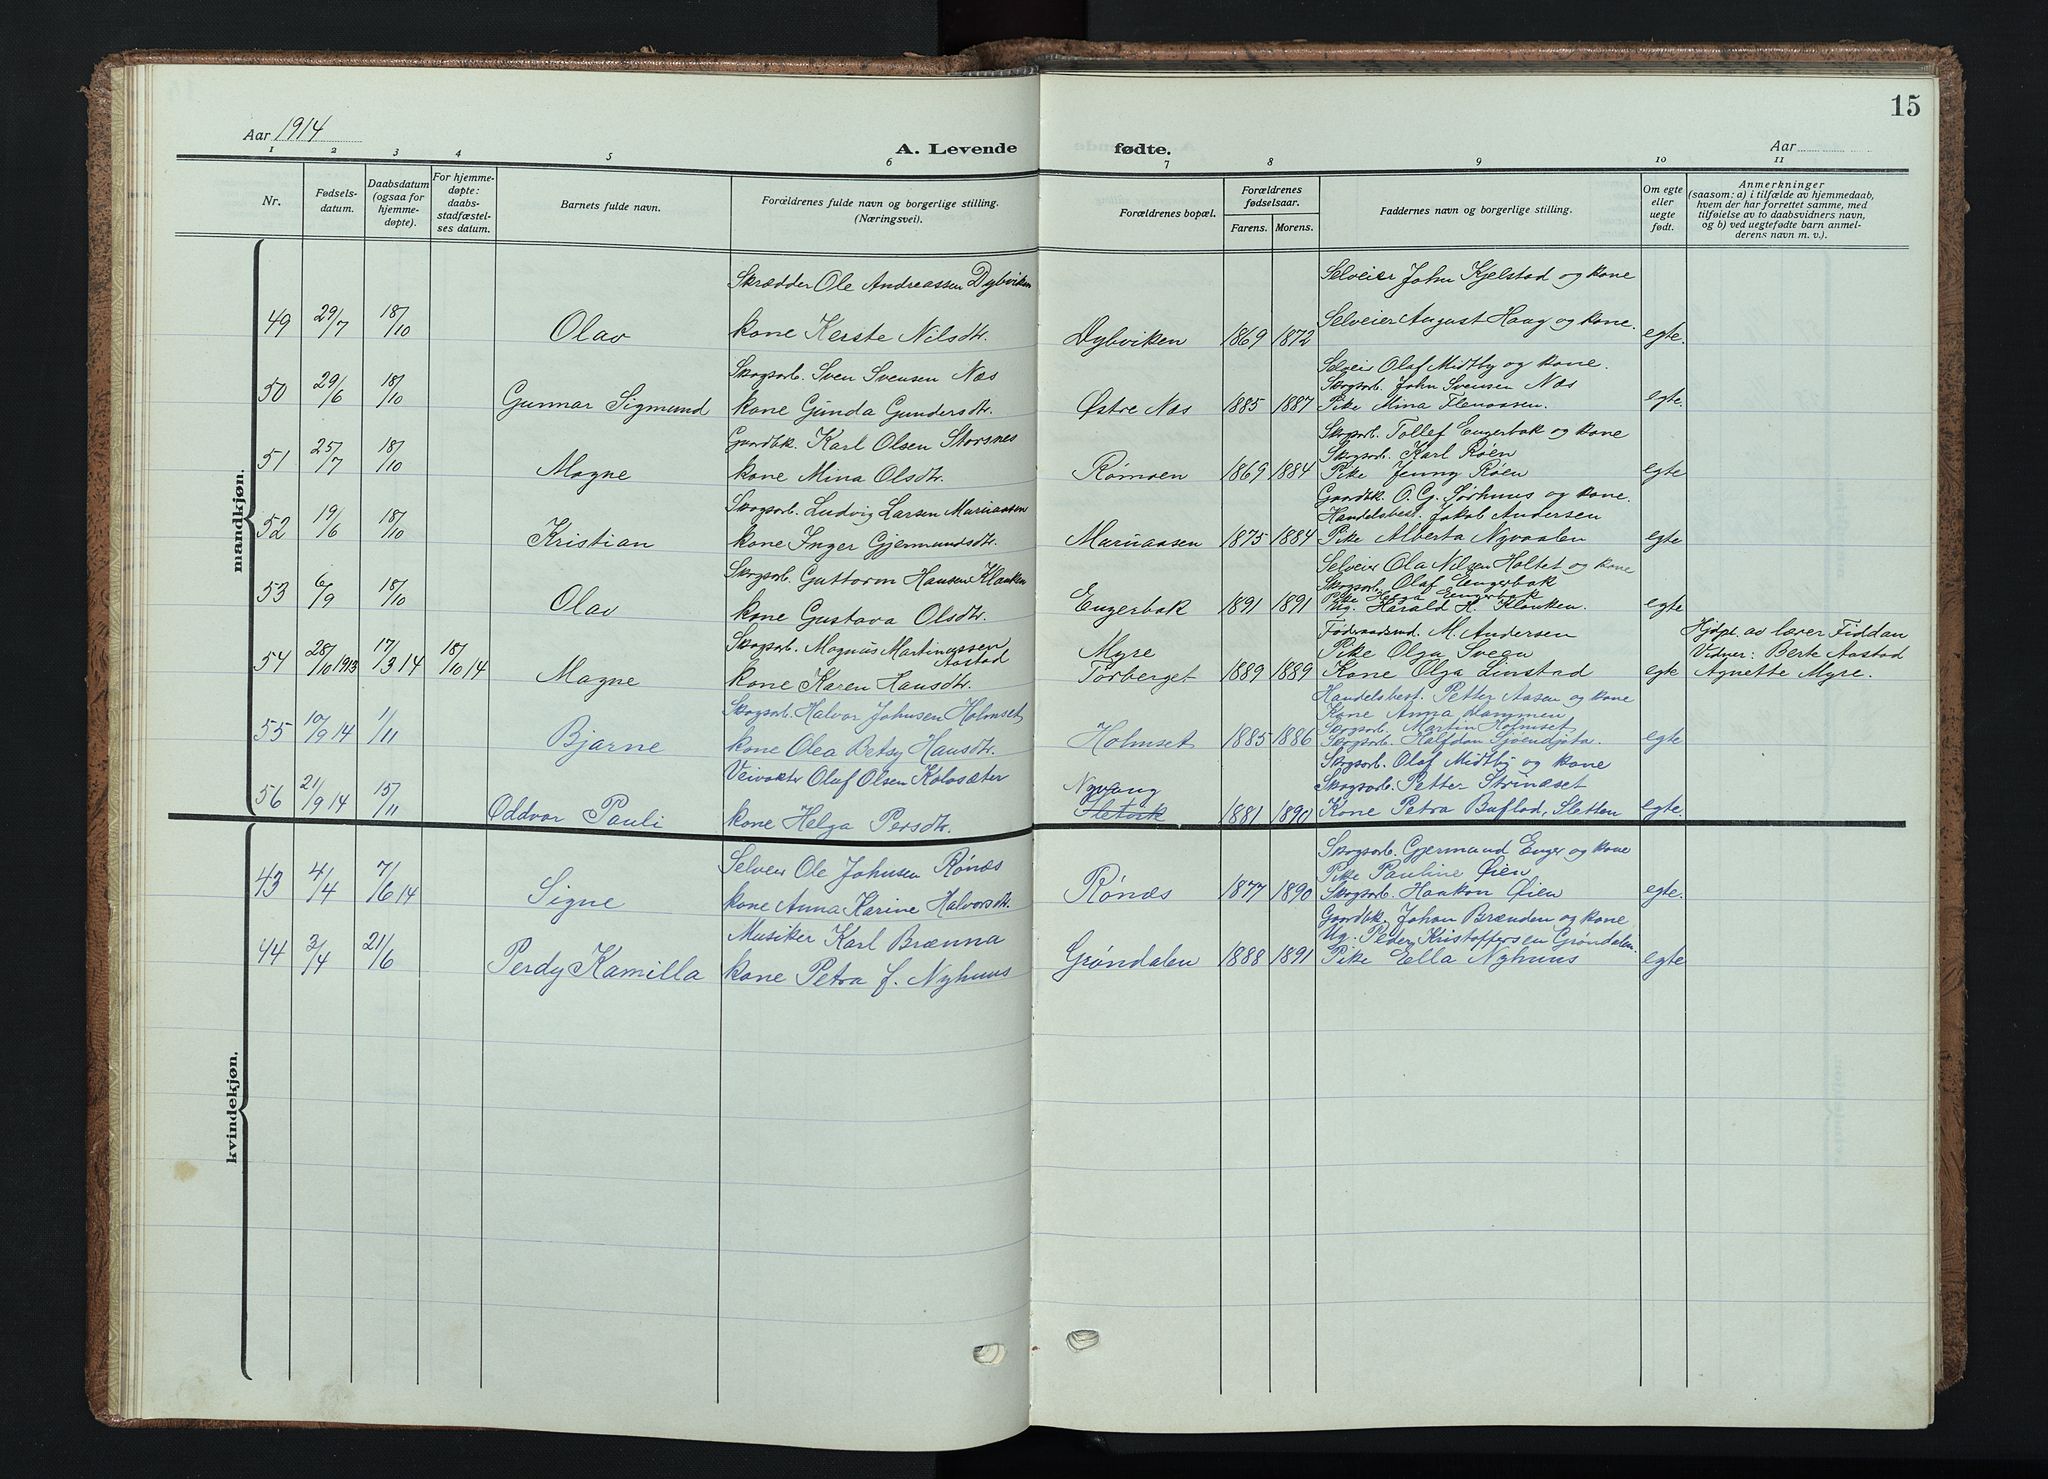 15
Aar 1914
A. Levende fødte.
Aar
1 2 3 4 5 6 7 8 9 10 11
Nr.
Fødsels-
datum.
Daabsdatum
(ogsaa for
hjemme-
døpte).
For hjemme-
døpte:
daabs-
stadfæstel-
ses datum.
Barnets fulde navn.
Forældrenes fulde navn og borgerlige stilling.
(Næringsvei).
Forældrenes bopæl.
Forældrenes
fødselsaar.
Farens. Morens.
Faddernes navn og borgerlige stilling.
Om egte
eller
uegte
født.
Anmerkninger
(saasom: a) i tilfælde av hjemmedaab,
hvem der har forrettet samme, med
tilføielse av to daabsvidners navn,
og b) ved uegtefødte barn anmel-
derens navn m. v.).
mandkjøn.
Skrædder Ole Andreassen Dybviken
Selveier John Kjelstad og kone
Selveier August Haag og kone.
49 29/7 18/10 Olav kone Kerste Nilsdtr. Dybviken 1869 1872 egte.
Skogsarb. Sven Svensen Næs
Selveier Olaf Midtby og kone.
Skogsarb. John Svensen Næs
50 29/6 18/10 Gunnar Sigmund kone Gunda Gundersdtr. Østre Næs 1885 1887 Pike Mina Flenaasen. egte.
Gaardbk. Karl Olsen Storsnes
Skogsarb. Tollef Engerbak og kone
Skogsarb. Karl Røen
51 25/7 18/10 Magne kone Mina Olsdtr. Rømoen 1869 1884 Pike Jenny Røen egte
Skogsarb. Ludvig Larsen Maruaasen
Gaardbk. O. G. Sørhuus og kone.
Handelsbest. Jakob Andersen
52 19/6 18/10 Kristian kone Inger Gjermundsdtr. Maruaasen 1875 1884 Pike Alberta Nyvaalen egte
Skogsarb. Guttorm Hansen Klanken
Selveier Ola Nilsen Holtet og kone
Skogsarb. Olaf Engerbak
Pike Helga Engerbak
53 6/9 18/10 Olav kone Gustava Olsdtr. Engerbak 1891 1891 Ug. Harald H. Klanken. egte
Skogsarb. Magnus Martinussen Aastad
Myre
Føderaadsmd. M. Andersen
Pike Olga Sveen
Hjdpt. av lærer Fiddan
Vidner: Berte Aastad
54 28/10 1913 17/3 14 18/10 14 Magne kone Karen Hansdtr. Tørberget 1889 1889 Kone Olga Linstad egte Agnette Myre.
Skogsarb. Halvor Johnsen Holmset
Handelsbest. Petter Aasen og kone
Kone Anna Lammen
Skogsarb. Martin Holmset
55 10/9 14 1/11 Bjarne kone Olea Betsy Hansdtr. Holmset 1885 1886 Skogsarb. Halfdan egte
Veivokter Olaf Olsen Kolosæter
Nyvang
Skogsarb. Olaf Midtby og kone
Skogsarb. Petter Strinæset
56 21/9 14 15/11 Oddvar Pauli kone Helga Persdtr. 1881 1890 Kone Petra Buflod, Sletten egte.
kvindekjøn.
Selveier Ole Johnsen Rønæs
Skogsarb. Gjermund Enger og kone
Pike Pauline Øien
43 4/4 7/6 14 Signe kone Anna Karine Halvorsdtr. Rønæs 1877 1890 Skogsarb. Haakon Øien egte.
Musiker Karl Brænna
Gaardbk. Johan Brænden og kone
Ug. Peder Kristoffersen Grøndalen
44 3/4 21/6 Perdy Kamilla kone Petra f. Nyhuus Grøndalen 1888 1891 Pike Ella Nyhuus egte